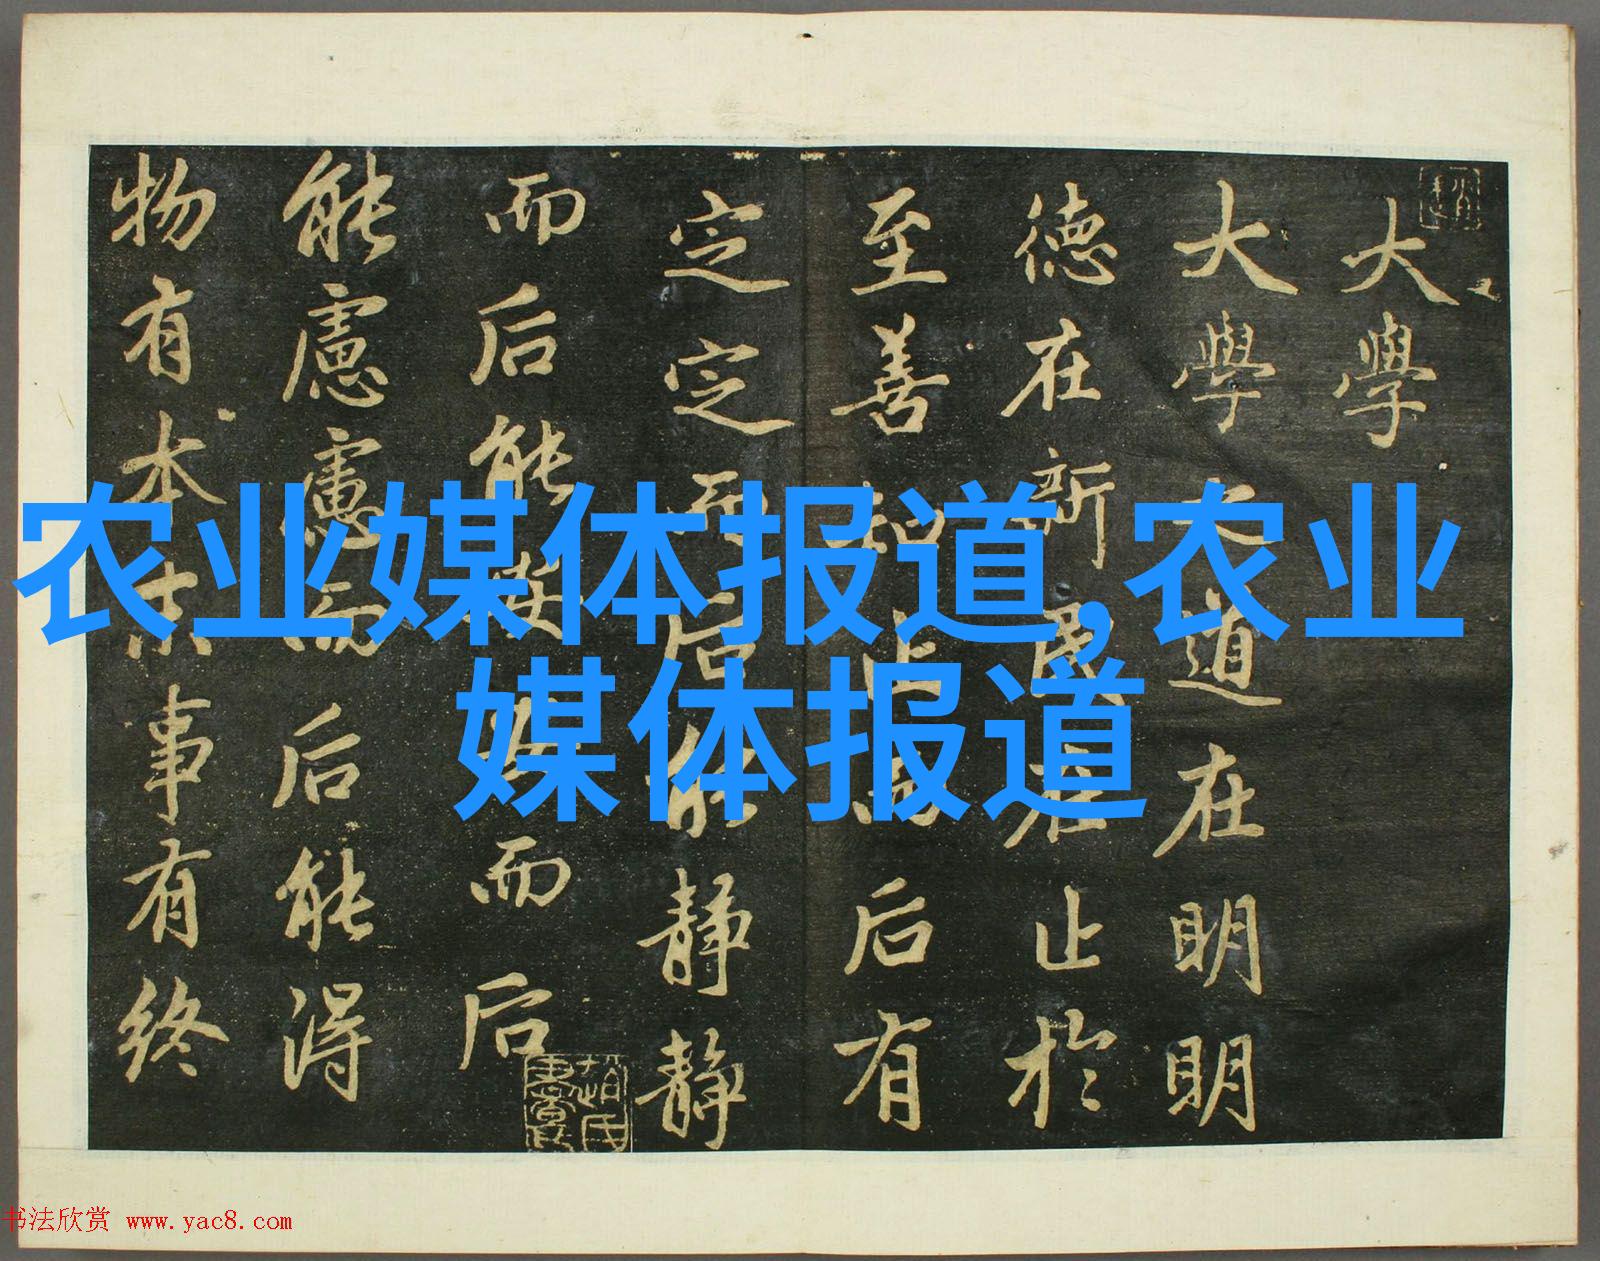 大學
大學之道在明明
德在新民在止於
至善知止而后有
定定而后能静静
而后能安安而后
能慮慮而后能得
物有本末事有终
农业媒体报道,农业
媒体报道
书法欣赏 www.yac8.com